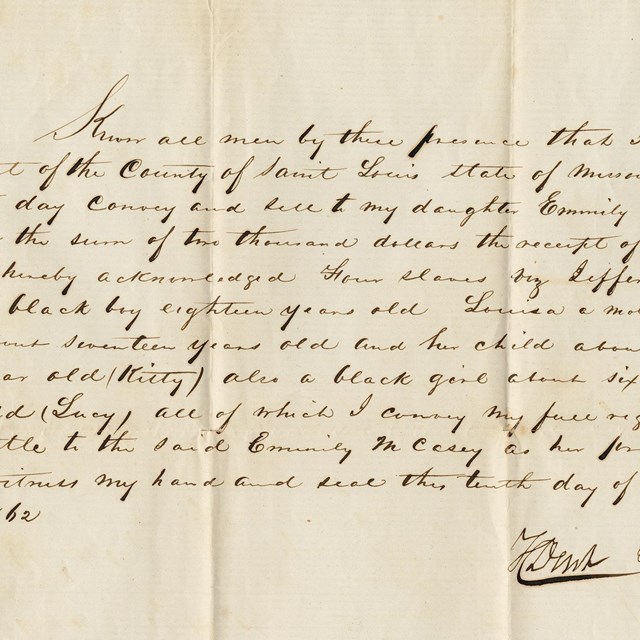 Know all men by these presence that I
t of the County of Saint Louis state of Misso
day Convey and sell to my daughter Emmily
the sum of two thousand dollars the receipt of
hereby acknowledged Four slaves viz Jeffer
black boy eighteen years old Louisa a mo
out seventeen years old and her child abou
ar old (Kitty) also a black girl about six
d (Lucy) all of which I convey my full rig
tle to the said Emmily M Casey as her pr
witness my hand and seal this tenth day of
62
F Dent